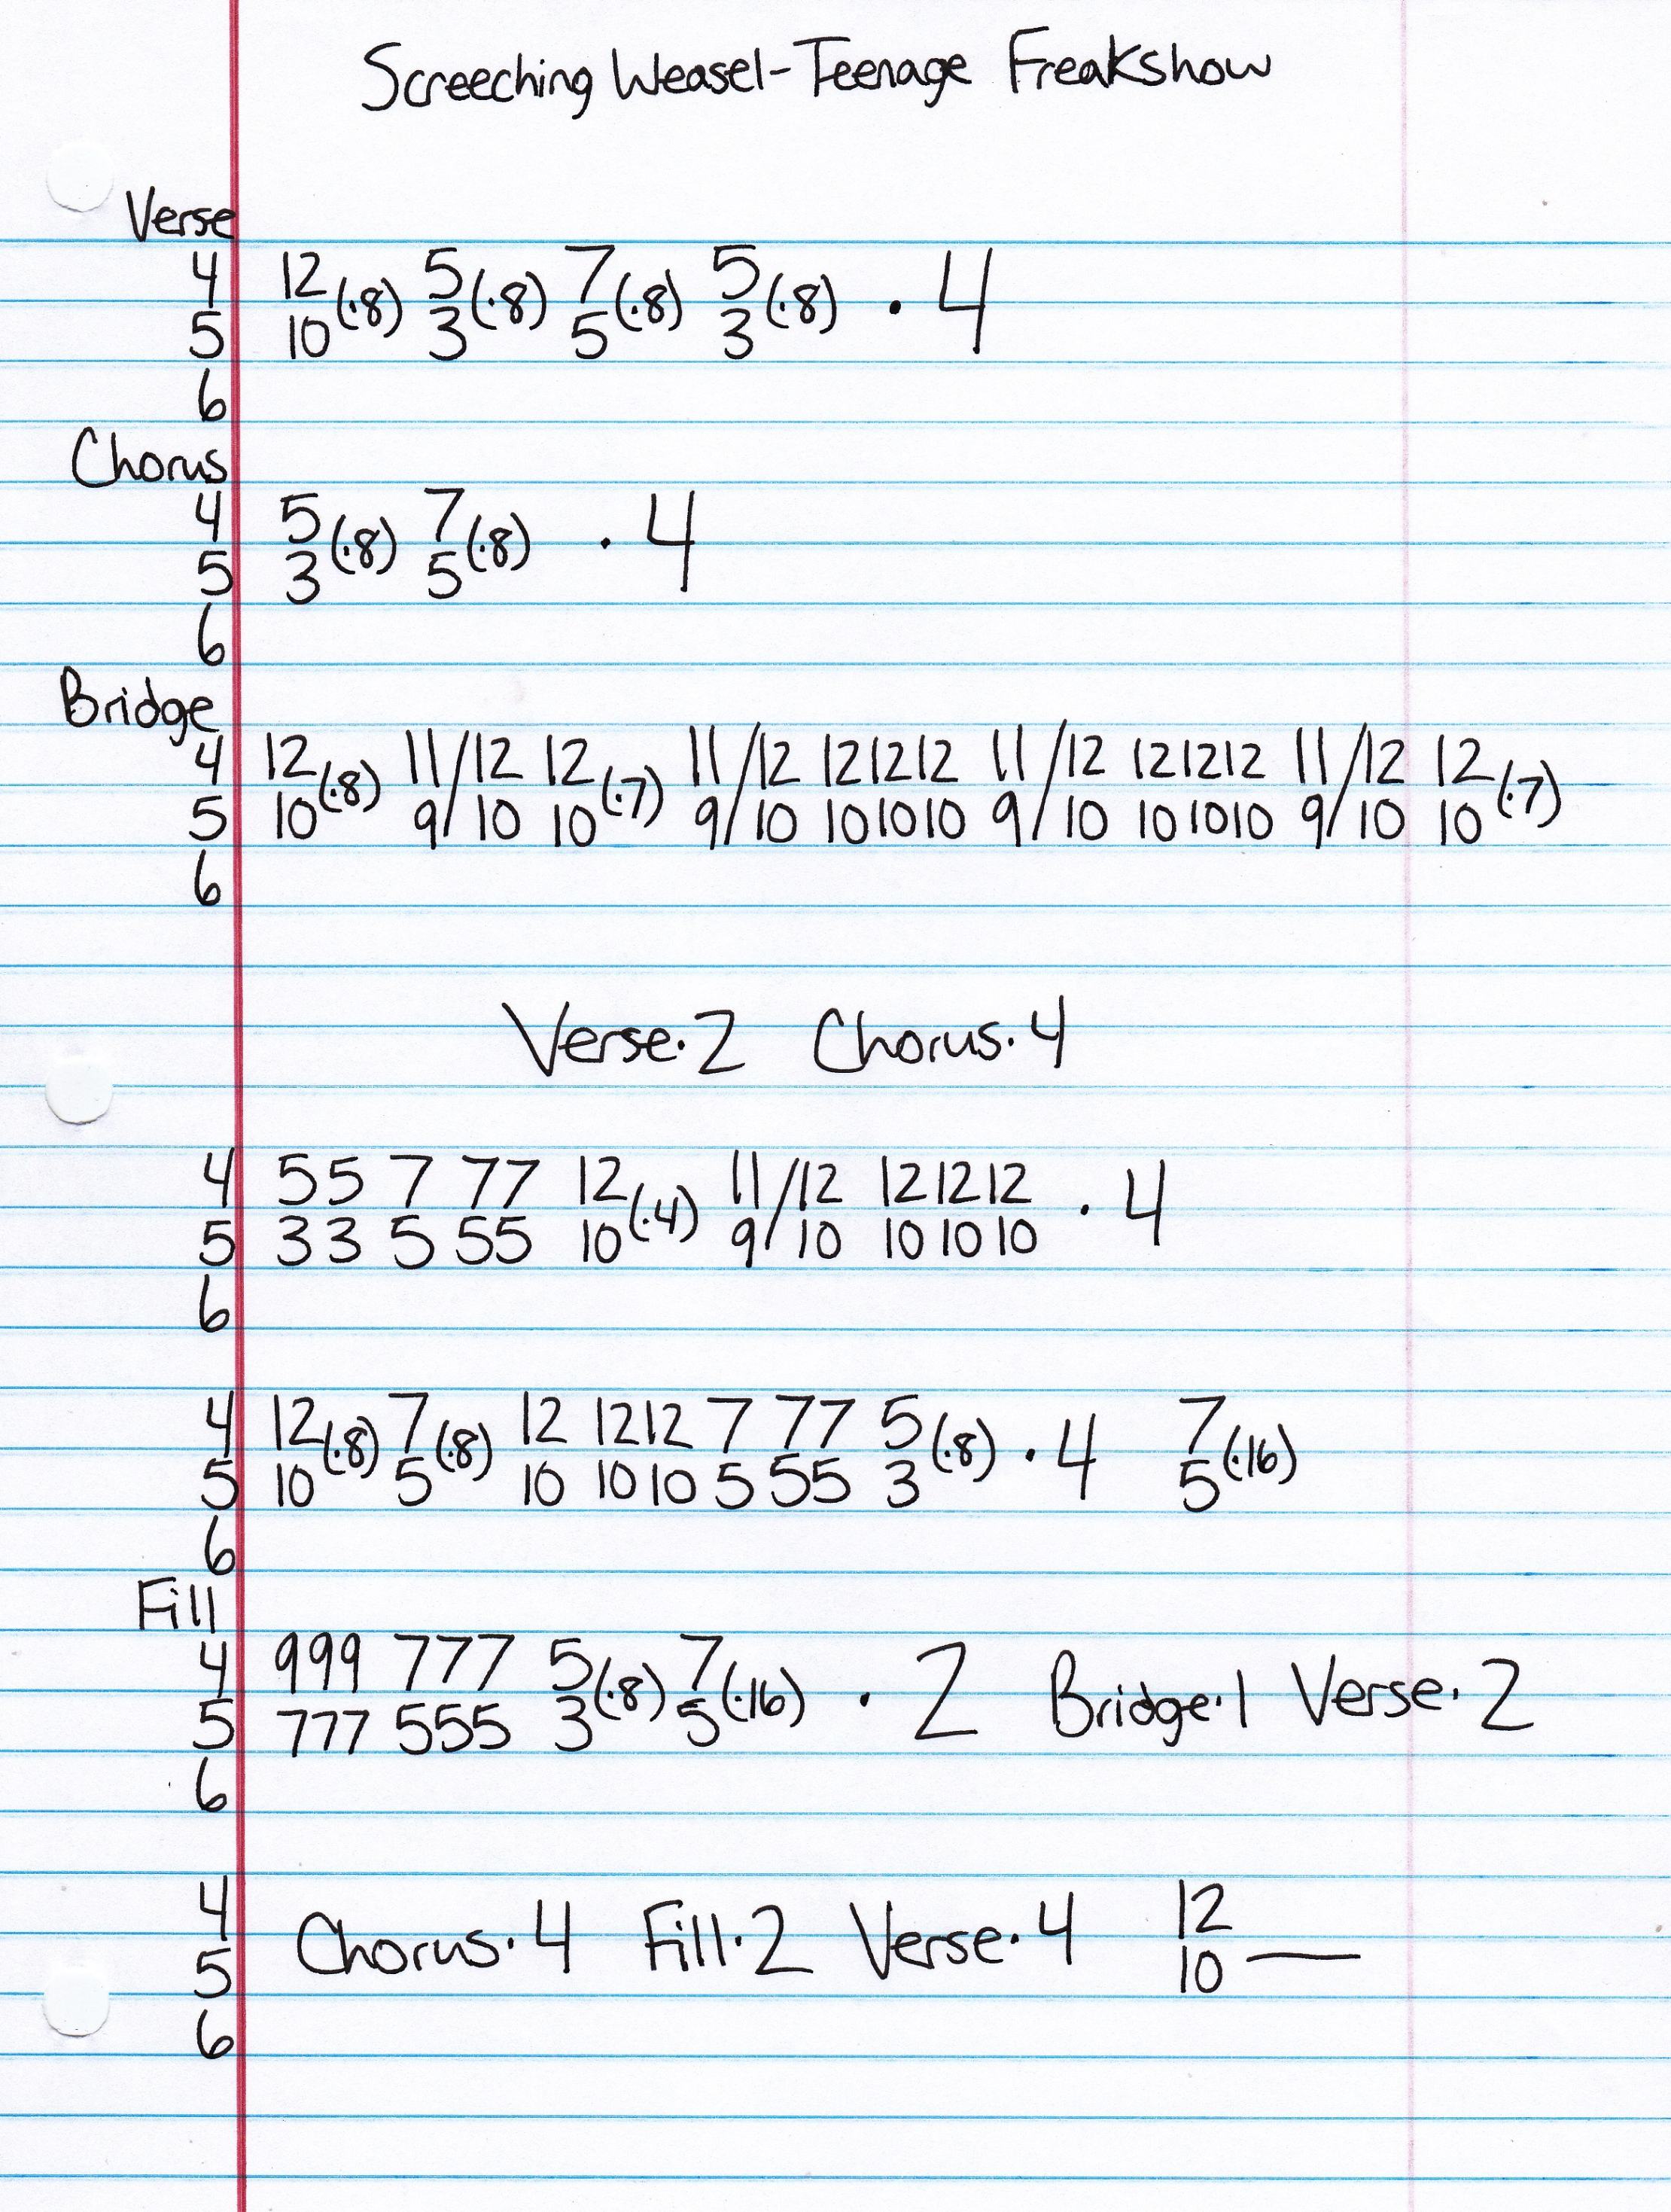 Screeching Weasel-Teenage Freakshow
Verse
4 12 (·8) 5 (·8) 7 (·8) 5 (·8) · 4
5 10 3 5 3
6
Chorus
4 5 (·8) 7 (·8) · 4
5 3 5
6
Bridge
4 12 (·8) 11/12 12 (·7) 11/12 121212 11/12 121212 11/12 12 (·7)
5 10 9/10 10 9/10 101010 9/10 101010 9/10 10
6
Verse·2 Chorus·4
4 55 7 77 12 (·4) 11/12 121212 · 4
5 33 5 55 10 9/10 101010
6
4 12 (·8) 7 (·8) 12 1212 7 77 5 (·8) · 4 7 (·16)
5 10 5 10 1010 5 55 3 5
6
Fill
4 999 777 5 (·8) 7 (·16) · 2 Bridge·1 Verse·2
5 777 555 3 5
6
4 Chorus·4 Fill·2 Verse·4 12
5 10 —
6